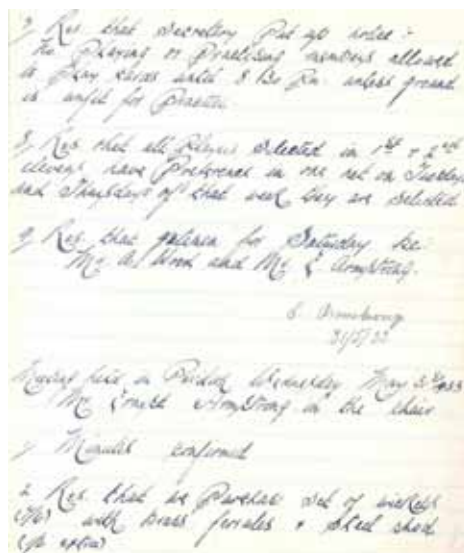 7, Res that Secretary Put up notice :-
No Playing or Practising members allowed
to Play until 8 30 Pm. unless ground
is unfit for Practice
8, Res that all Players Selected in 1st & 2nd
elevens have Preference in one net on Tuesdays
and Thursdays of that week they are selected
9, Res that gatemen for Saturday be
Mr A. Wood and Mr E Armstrong.
E. Armstrong
31/5/33
Meeting held in Pavilion Wednesday May 1933
Mr Ernest Armstrong in the chair
1, Minutes confirmed
2 Res that we Purchase Set of wickets
with Brass ferrules & Steel shod
extra)